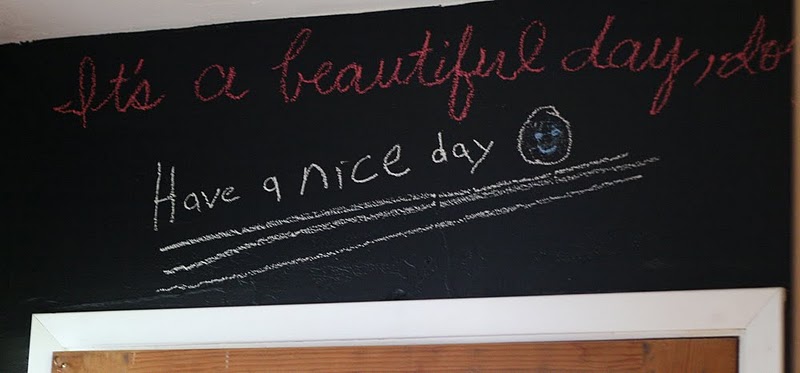 It's a beautiful day, do
Have a nice day